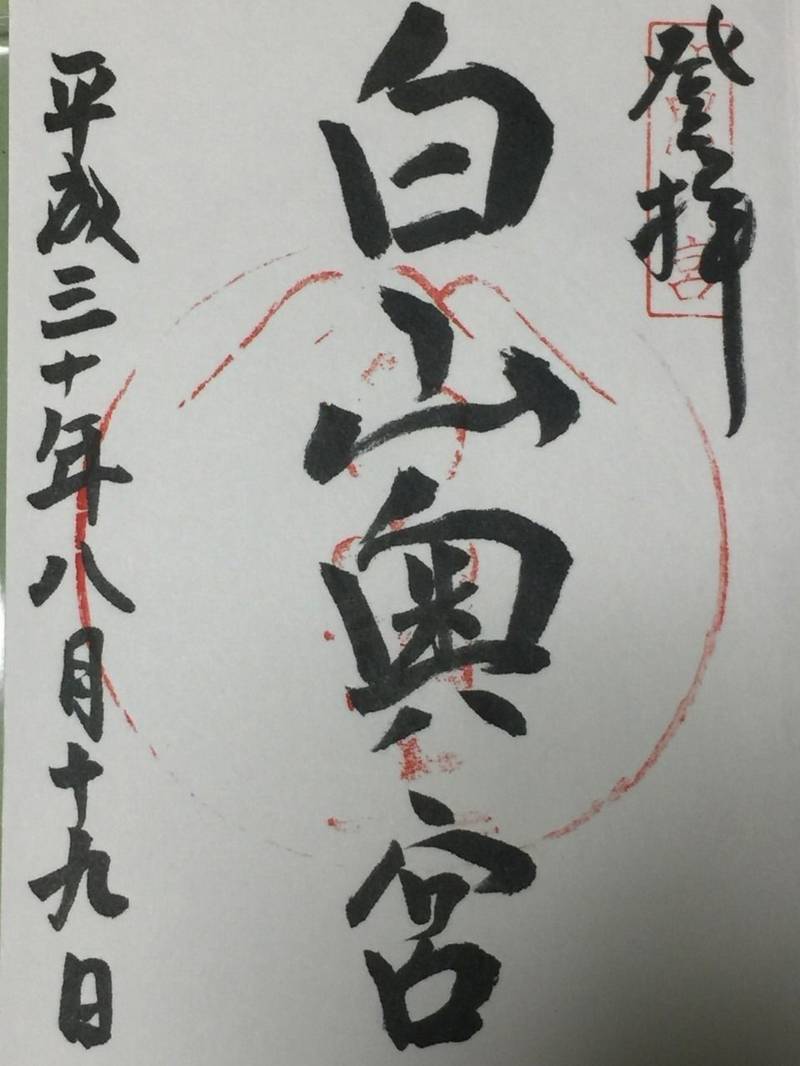 登拝
白山奥宮
平成三十年八月十九日